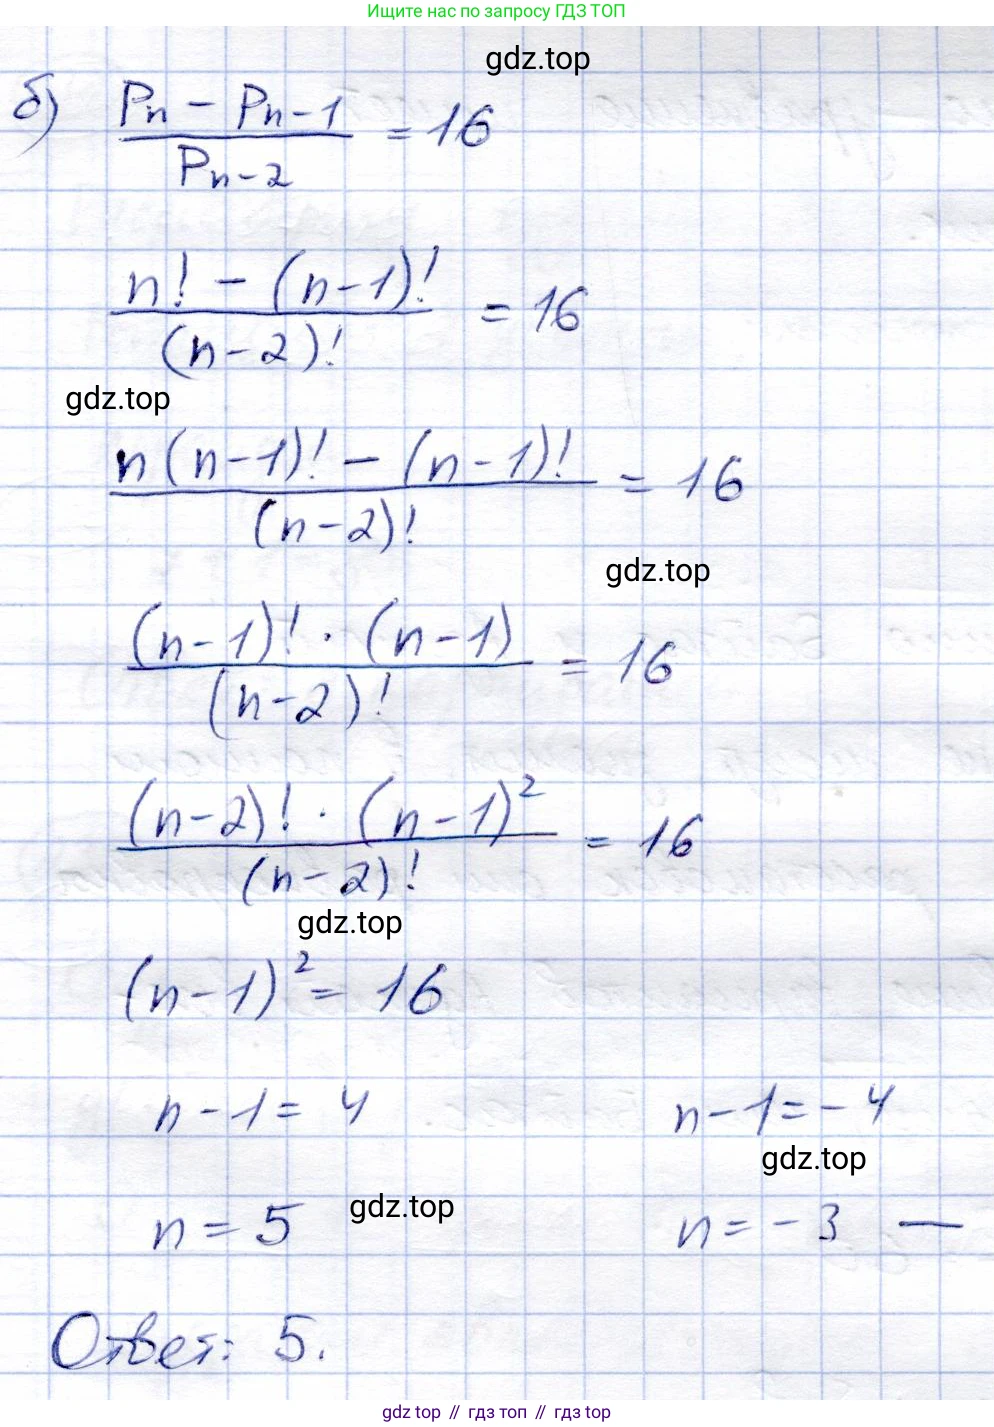 Ищите нас по запросу ГДЗ ТОП
gdz.top
б) (Pn - Pn-1) / Pn-2 = 16
(n! - (n-1)!) / (n-2)! = 16
gdz.top
(n(n-1)! - (n-1)!) / (n-2)! = 16
gdz.top
((n-1)! · (n-1)) / (n-2)! = 16
((n-2)! · (n-1)²) / (n-2)! = 16
gdz.top
(n-1)² = 16
n-1 = 4 n-1 = -4
gdz.top
gdz.top
n = 5 n = -3 —
Ответ: 5.
gdz top // гдз топ // gdz top